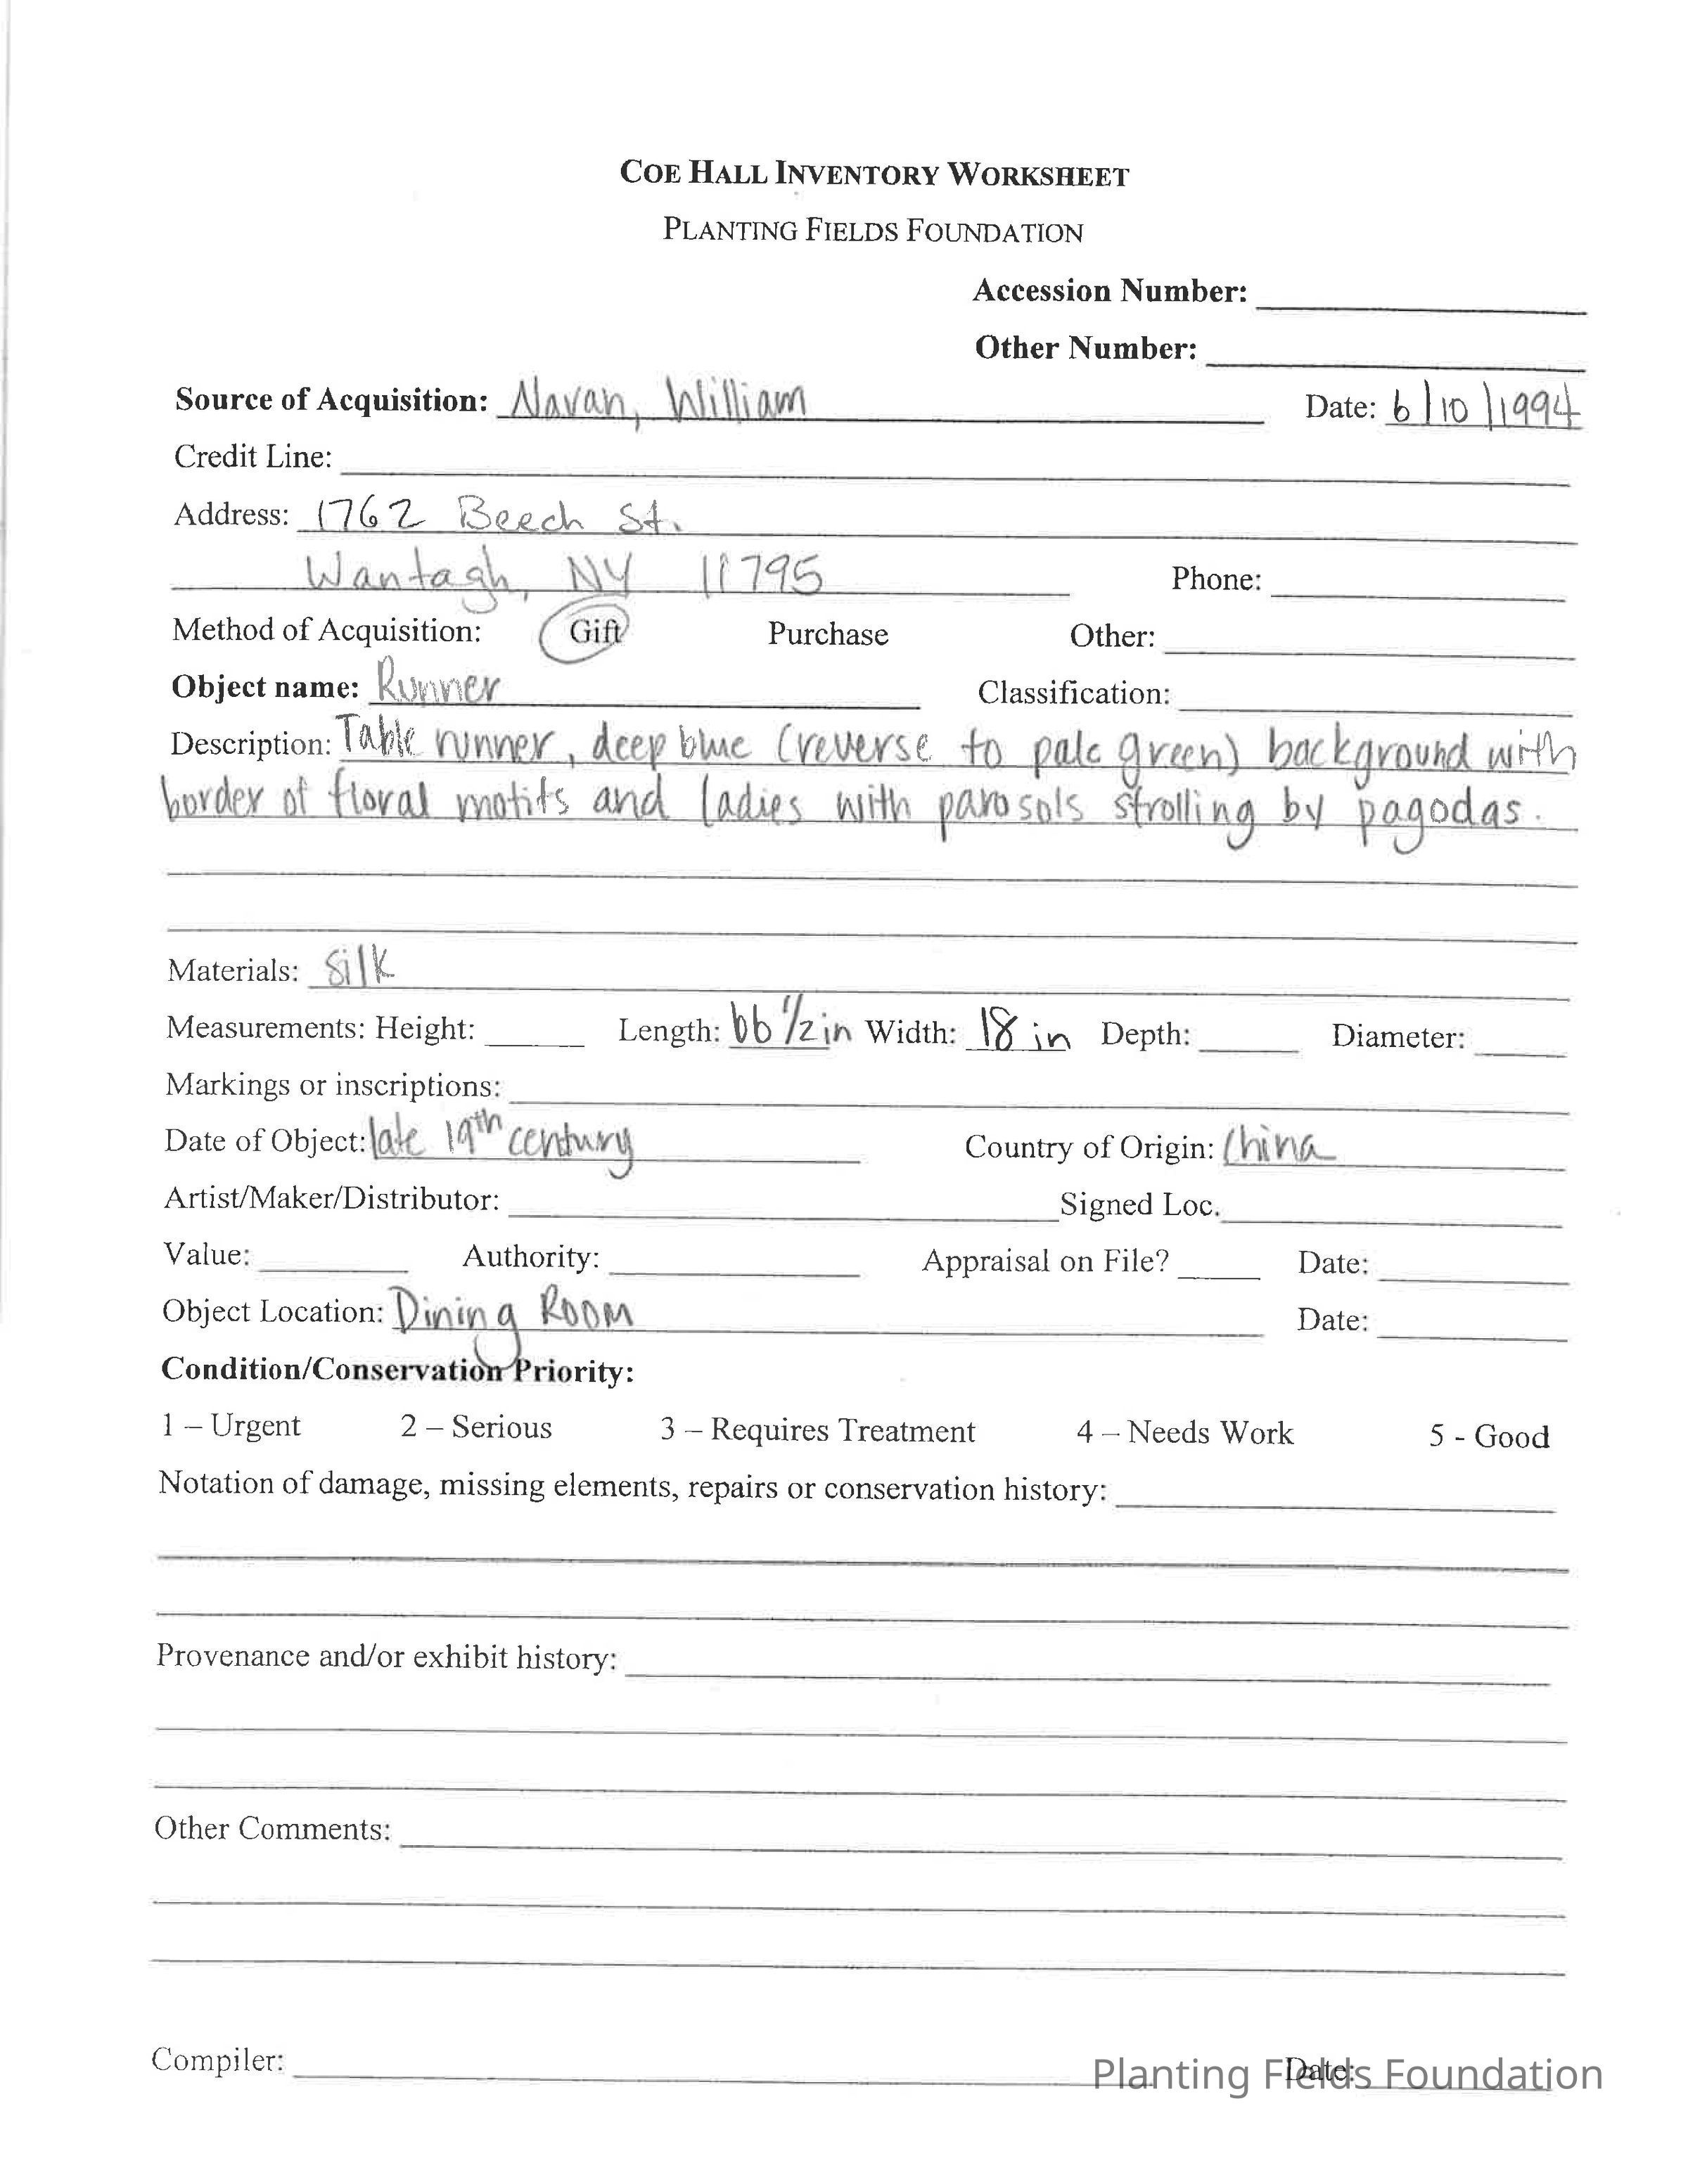 COE HALL INVENTORY WORKSHEET
PLANTING FIELDS FOUNDATION
Accession Number:
Other Number:
Source of Acquisition: Navan, William Date: 6/10/1994
Credit Line:
Address: 1762 Beech St.
Wantagh, NY 11795 Phone:
Method of Acquisition: Gift Purchase Other:
Object name: Runner Classification:
Description: Table runner, deep blue (reverse to pale green) background with
border of floral motifs and ladies with parasols strolling by pagodas.
Materials: Silk
Measurements: Height: Length: 66 1/2 in Width: 18 in Depth: Diameter:
Markings or inscriptions:
Date of Object: late 19th century Country of Origin: China
Artist/Maker/Distributor: Signed Loc.
Value: Authority: Appraisal on File? Date:
Object Location: Dining Room Date:
Condition/Conservation Priority:
1 – Urgent 2 – Serious 3 – Requires Treatment 4 – Needs Work 5 - Good
Notation of damage, missing elements, repairs or conservation history:
Provenance and/or exhibit history:
Other Comments:
Compiler: Date:
Planting Fields Foundation